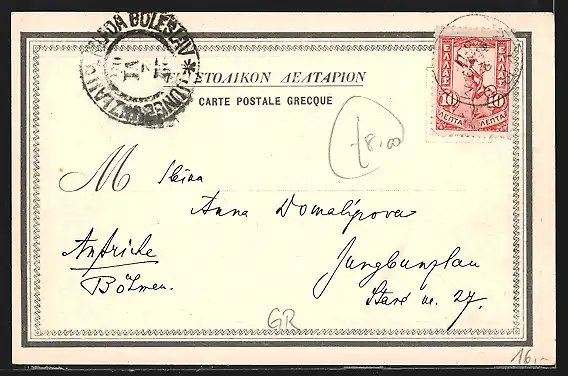 MLADA BOLESLAV
* JUNGBUNZLAU
ΕΠΙΣΤΟΛΙΚΟΝ ΔΕΛΤΑΡΙΟΝ
CARTE POSTALE GRECQUE
ΕΛΛΑΣ
10 10
ΛΕΠΤΑ ΛΕΠΤΑ
18,00
M
Anna Domalipova
Autriche
Jungbunzlau
Böhmen.
27.
GR
16,-